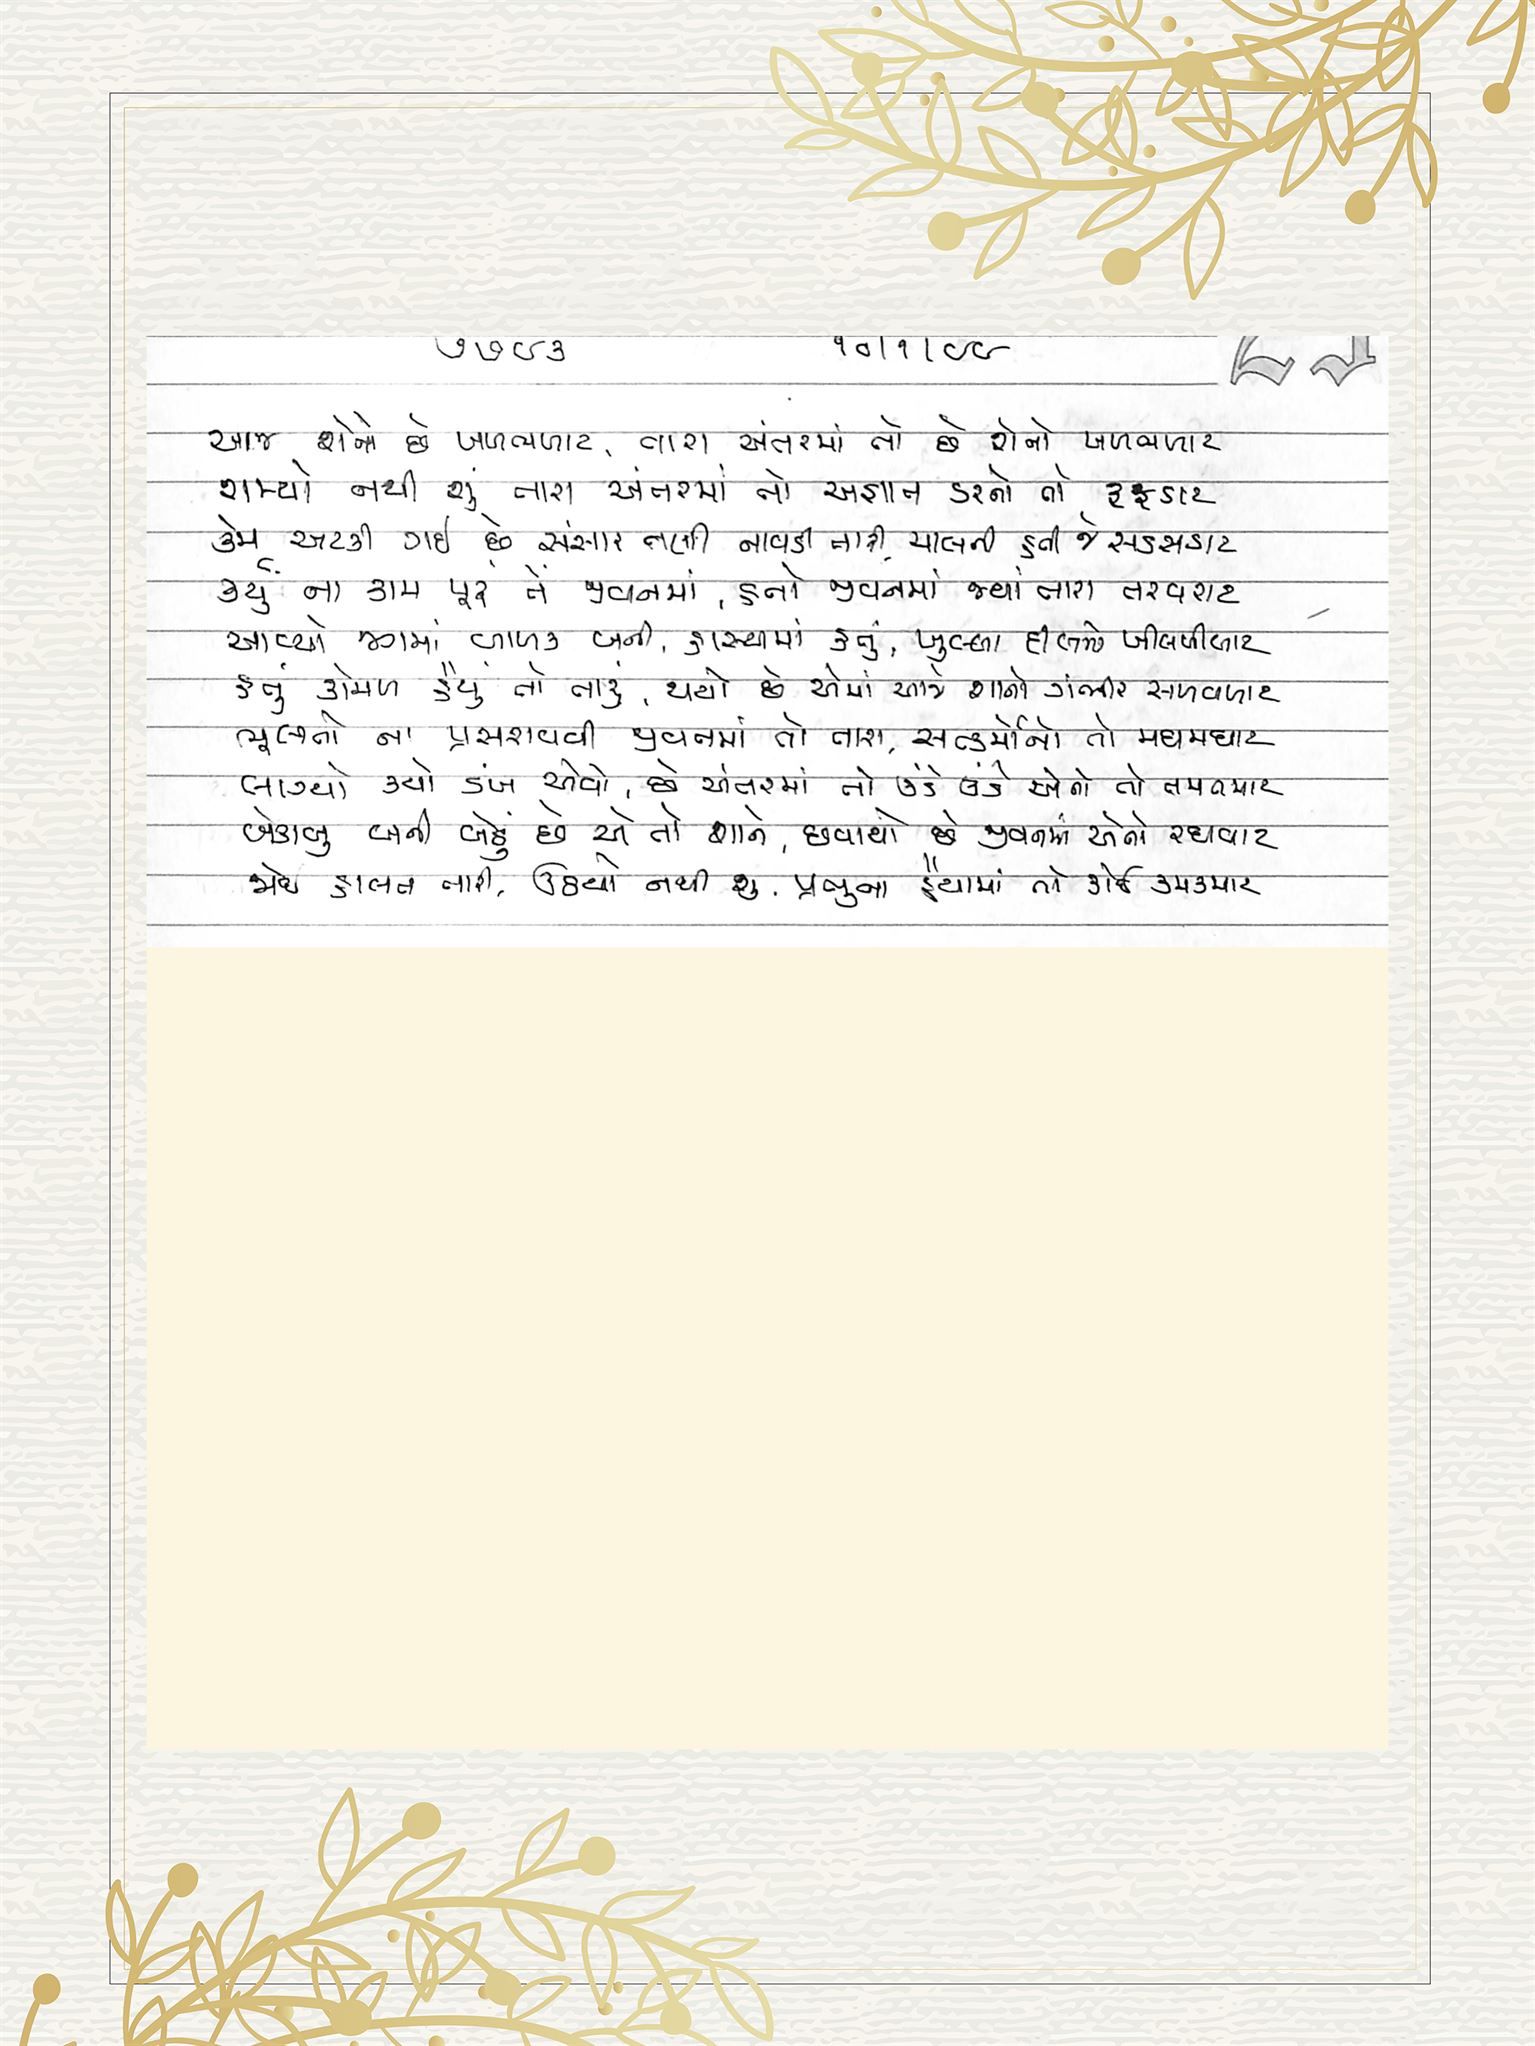 ૭૭૯૩ ૧૦/૧/૯૯
આજ શેનો છે ખળભળાટ, તારા અંતરમાં તો છે શેનો ખળભળાટ
શમ્યો નથી શું તારા અંતરમાં તો અજ્ઞાન ડરનો તો ફફડાટ
કેમ અટકી ગઈ છે સંસાર તણી નાવડી તારી, ચાલતી હતી જે સડસડાટ
કર્યું ના કામ પૂરું તેં જીવનમાં, હતો જીવનમાં જ્યાં તારા તરવરાટ
આવ્યો જગમાં બાળક બની, હાસ્યમાં હતું, ખુલ્લા દીલનો ખીલખીલાટ
હતું કોમળ હૈયું તો તારું, થયો છે એમાં આજે શાનો ગંભીર સળવળાટ
ભૂલતો ના પ્રસરાવવી જીવનમાં તો તારા, સત્કર્મોનો તો મઘમઘાટ
લાગ્યો કયો ડંખ એવો, છે અંતરમાં તો ઉંડે ઉંડે એનો તો તમતમાટ
બેકાબુ બની બેઠું છે એ તો શાને, છવાયો છે જીવનમાં એનો રઘવાટ
જોઇ હાલત તારી, ઉઠયો નથી શું, પ્રભુના હૈયામાં તો કોઈ કમકમાટ